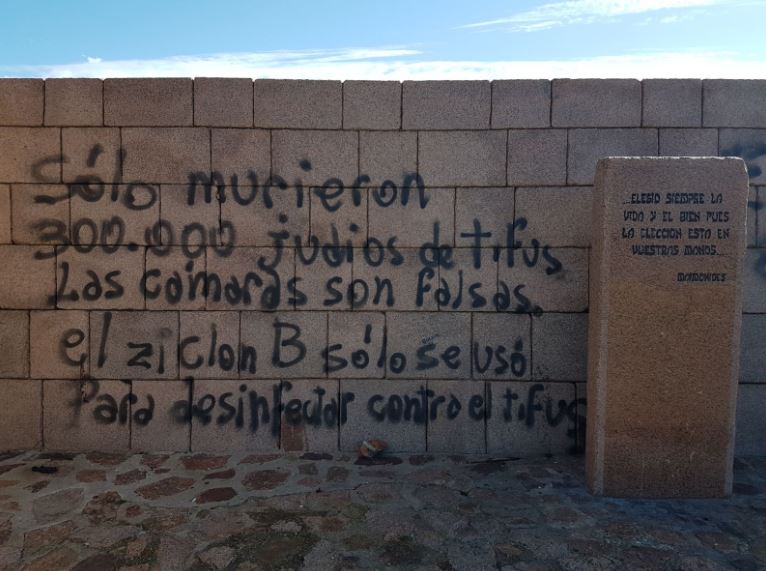 Sólo murieron
300.000 judios de tifus
Las cámaras son falsas.
el ziclon B sólo se usó
Para desinfectar contra el tifus
...ELEGID SIEMPRE LA
VIDA Y EL BIEN PUES
LA ELECCION ESTA EN
VUESTRAS MANOS...
MAIMONIDES